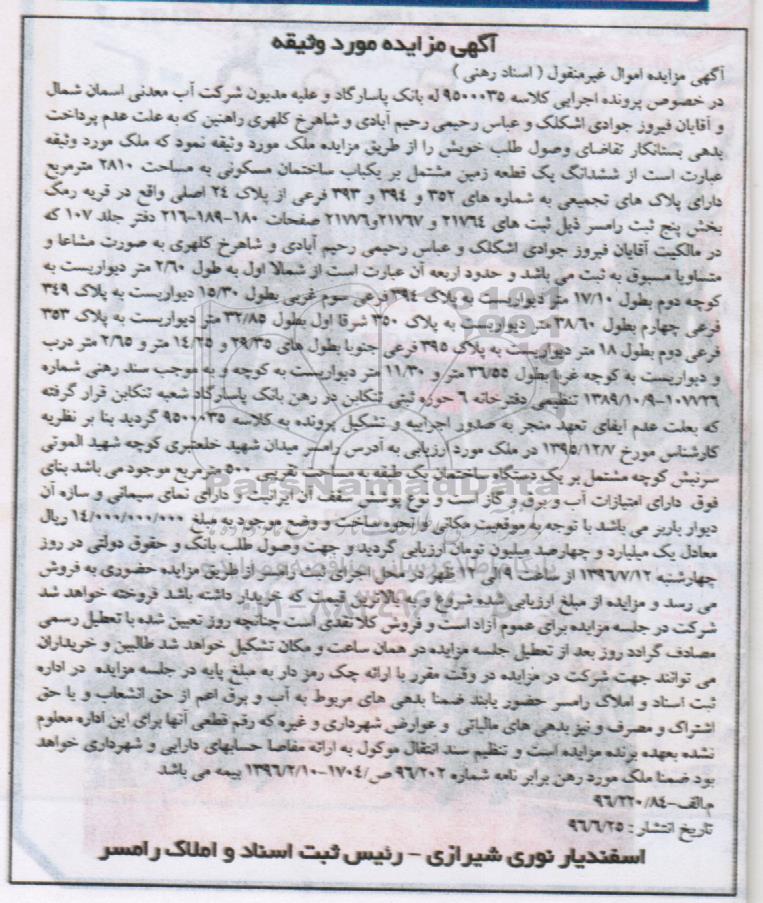 آگهی مزایده مورد وثیقه
آگهی مزایده اموال غیرمنقول ( اسناد رهنی )
در خصوص پرونده اجرایی کلاسه ۹۵۰۰۰۳۵ له بانک پاسارگاد و علیه مدیون شرکت آب معدنی اسمان شمال
و آقایان فیروز جوادی اشکلک و عباس رحیمی رحیم آبادی و شاهرخ کلهری راهنین که به علت عدم پرداخت
بدهی بستانکار تقاضای وصول طلب خویش را از طریق مزایده ملک مورد وثیقه نمود که ملک مورد وثیقه
عبارت است از ششدانگ یک قطعه زمین مشتمل بر یکباب ساختمان مسکونی به مساحت ۲۸۱۰ مترمربع
دارای پلاک های تجمیعی به شماره های ۳۵۲ و ۳۹۴ و ۳۹۳ فرعی از پلاک ۲۴ اصلی واقع در قریه رمک
بخش پنج ثبت رامسر ذیل ثبت های ۲۱۷۶۴ و ۲۱۷۶۷و۲۱۷۷۶ صفحات ۱۸۰-۱۸۹-۲۱۶ دفتر جلد ۱۰۷ که
در مالکیت آقایان فیروز جوادی اشکلک و عباس رحیمی رحیم آبادی و شاهرخ کلهری به صورت مشاعا و
متساویا مسبوق به ثبت می باشد و حدود اربعه آن عبارت است از شمالا اول به طول ۲/۶۰ متر دیواریست به
کوچه دوم بطول ۱۷/۱۰ متر دیواریست به پلاک ۳۹۴ فرعی سوم غربی بطول ۱۵/۳۰ دیواریست به پلاک ۳۴۹
فرعی چهارم بطول ۳۸/۶۰ متر دیواریست به پلاک ۳۵۰ شرقا اول بطول ۳۲/۸۵ متر دیواریست به پلاک ۳۵۳
فرعی دوم بطول ۱۸ متر دیواریست به پلاک ۳۹۵ فرعی جنوبا بطول های ۲۹/۳۵ و ۱۴/۲۵ متر و ۲/۶۵ متر درب
و دیواریست به کوچه غربا بطول ۳۶/۵۵ متر و ۱۱/۳۰ متر دیواریست به کوچه و به موجب سند رهنی شماره
۱۰۷۷۲۶-۱۳۸۹/۱۰/۹ تنظیمی دفترخانه ۶ حوزه ثبتی تنکابن در رهن بانک پاسارگاد شعبه تنکابن قرار گرفته
که بعلت عدم ایفای تعهد منجر به صدور اجراییه و تشکیل پرونده به کلاسه ۹۵۰۰۰۳۵ گردید بنا بر نظریه
کارشناس مورخ ۱۳۹۵/۱۲/۷ در ملک مورد ارزیابی به آدرس رامسر میدان شهید خلعتبری کوچه شهید الموتی
سرنبش کوچه مشتمل بر یک دستگاه ساختمان یک طبقه به مساحت تقریبی ۵۰۰ مترمربع موجود می باشد بنای
فوق دارای امتیازات آب و برق و گاز است و نوع پوشش سقف آن ایرانیت و دارای نمای سیمانی و سازه آن
دیوار باربر می باشد با توجه به موقعیت مکانی و نحوه ساخت و وضع موجود به مبلغ ۱۴/۰۰۰/۰۰۰/۰۰۰ ریال
معادل یک میلیارد و چهارصد میلیون تومان ارزیابی گردید و جهت وصول طلب بانک و حقوق دولتی در روز
چهارشنبه ۱۳۹۶/۷/۱۲ از ساعت ۹ الی ۱۲ ظهر در محل اجرای ثبت رامسر از طریق مزایده حضوری به فروش
می رسد و مزایده از مبلغ ارزیابی شده شروع و به بالاترین قیمت که خریدار داشته باشد فروخته خواهد شد
شرکت در جلسه مزایده برای عموم آزاد است و فروش کلا نقدی است چنانچه روز تعیین شده با تعطیل رسمی
مصادف گردد روز بعد از تعطیل جلسه مزایده در همان ساعت و مکان تشکیل خواهد شد طالبین و خریداران
می توانند جهت شرکت در مزایده در وقت مقرر با ارائه چک رمز دار به مبلغ پایه در جلسه مزایده در اداره
ثبت اسناد و املاک رامسر حضور یابند ضمنا بدهی های مربوط به آب و برق اعم از حق انشعاب و یا حق
اشتراک و مصرف و نیز بدهی های مالیاتی و عوارض شهرداری و غیره که رقم قطعی آنها برای این اداره معلوم
نشده بعهده برنده مزایده است و تنظیم سند انتقال موکول به ارائه مفاصا حسابهای دارایی و شهرداری خواهد
بود ضمنا ملک مورد رهن برابر نامه شماره ۹۶/۲۰۲ ص/۱۷۰۴-۱۳۹۶/۲/۱۰ بیمه می باشد
م.الف-۹۶/۲۲۰/۸۴
تاریخ انتشار : ۹۶/۶/۲۵
اسفندیار نوری شیرازی - رئیس ثبت اسناد و املاک رامسر
ParsNamadData